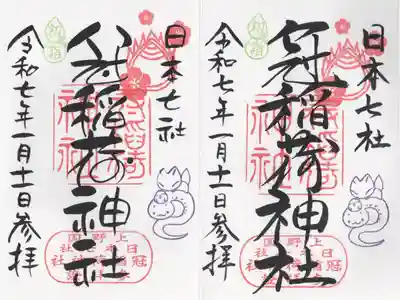 日本七社
冠稲荷神社
令和七年一月十一日参拝
日本七社
冠稲荷神社
令和七年一月十一日参拝